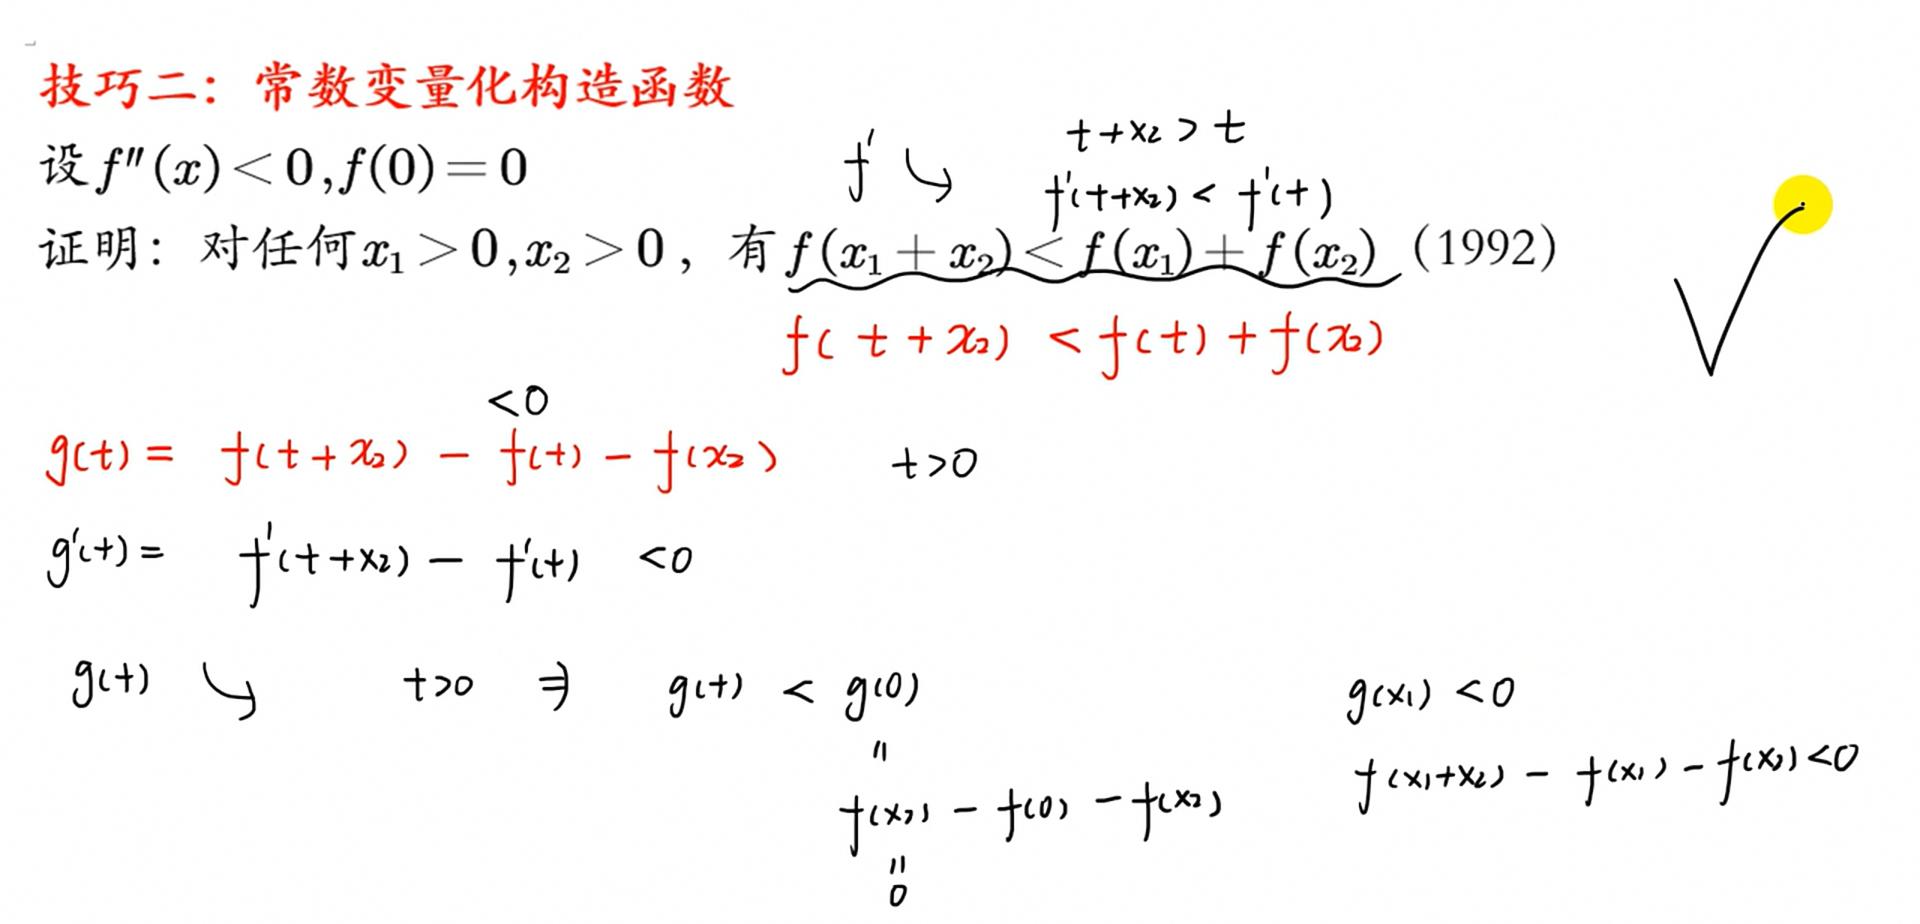 技巧二：常数变量化构造函数
设 f″(x) < 0, f(0) = 0
f′ ↘
t+x₂ > t
f′(t+x₂) < f′(t)
证明：对任何 x₁ > 0, x₂ > 0，有 f(x₁ + x₂) < f(x₁) + f(x₂)（1992）
f(t + x₂) < f(t) + f(x₂)
<0
g(t) = f(t + x₂) - f(t) - f(x₂) t>0
g′(t) = f′(t+x₂) - f′(t) <0
g(t) ↘ t>0 ⇒ g(t) < g(0)
=
f(x₂) - f(0) - f(x₂)
=
0
g(x₁) <0
f(x₁+x₂) - f(x₁) - f(x₂) <0